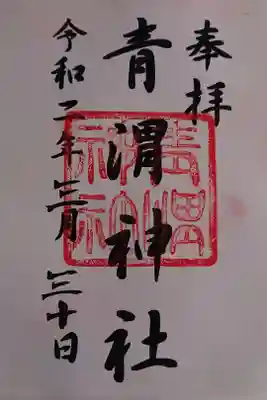 奉拝
青渭神社
令和二年三月三十日
青渭神社